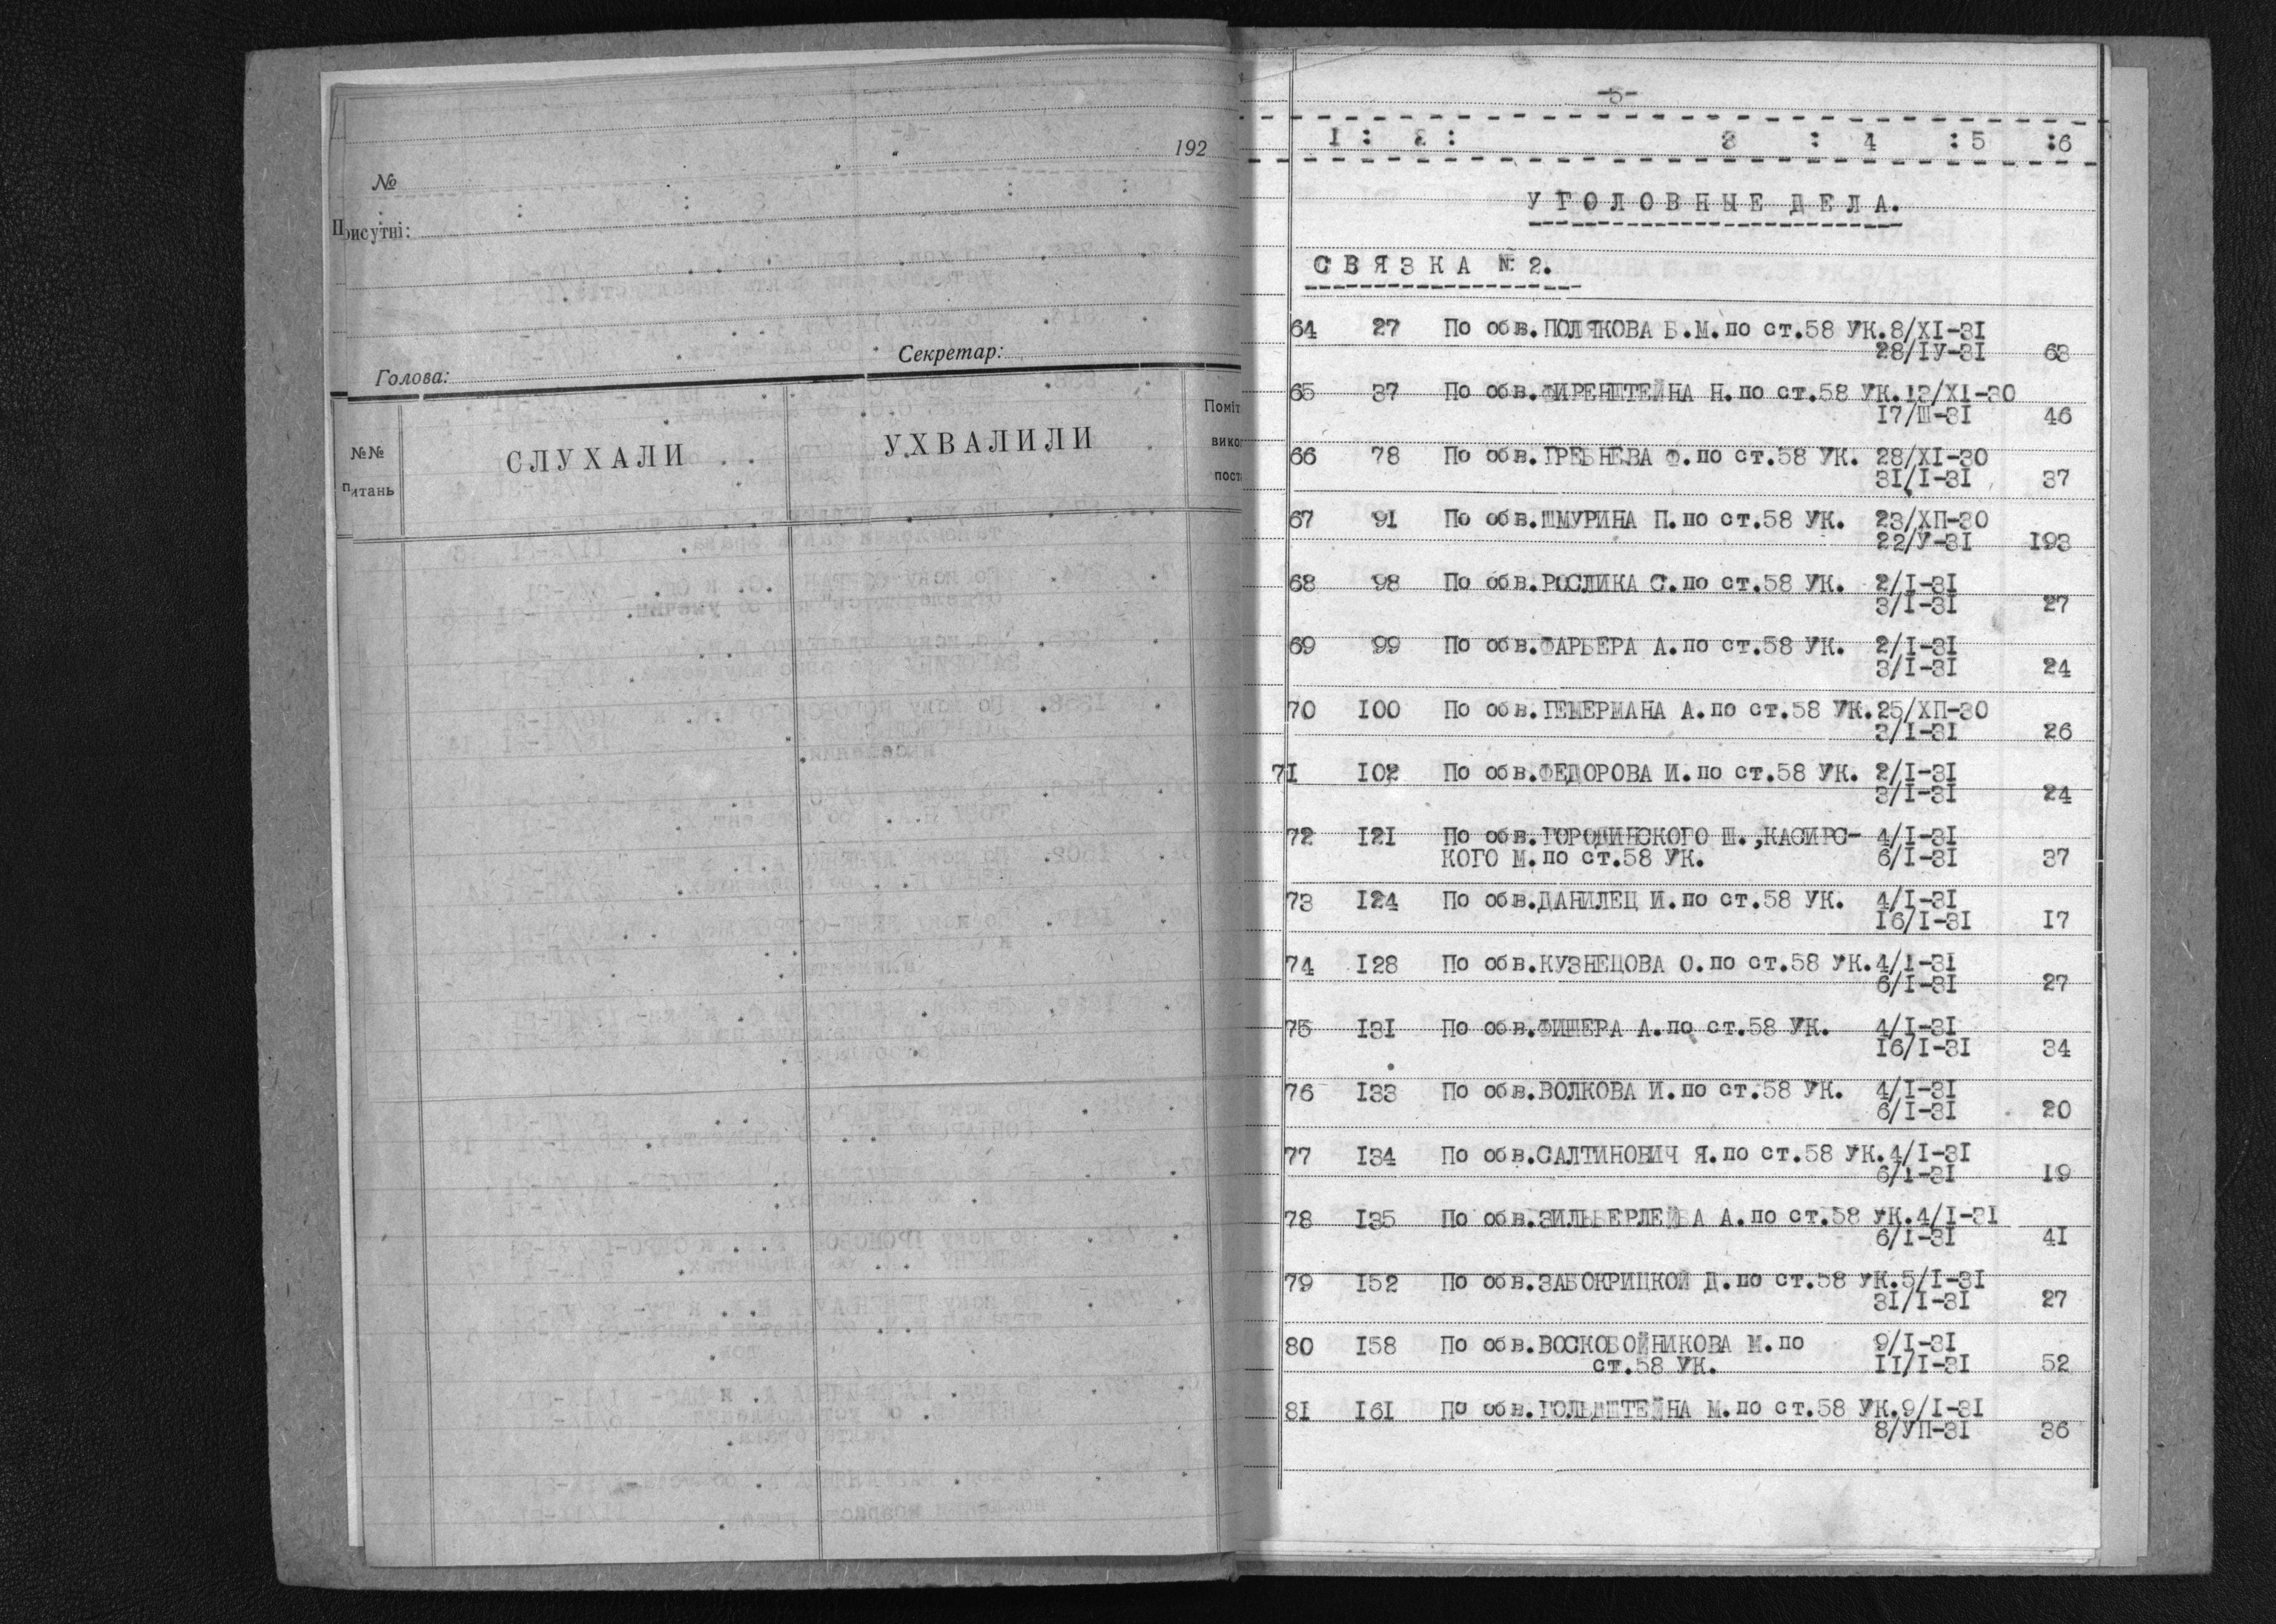 192
№
Присутні:
Голова:
Секретар:
№№
питань
СЛУХАЛИ
УХВАЛИЛИ
Поміт
вико
пост
-5-
1 : 2 : 3 : 4 : 5 :6
УГОЛОВНЫЕ ДЕЛА.
СВЯЗКА № 2.
64 27 По обв.ПОЛЯКОВА Б.М.по ст.58 УК.8/XI-31
28/IУ-31 63
65 37 По обв.ФИРЕНШТЕЙНА Н.по ст.58 УК.13/XI-30
17/Ш-31 46
66 78 По обв.ГРЕБНЕВА Ф.по ст.58 УК. 28/XI-30
31/I-31 37
67 91 По обв.ШМУРИНА П.по ст.58 УК. 23/ХП-30
22/У-31 193
68 98 По обв.РОСЛИКА С.по ст.58 УК. 2/I-31
3/I-31 27
69 99 По обв.ФАРБЕРА А.по ст.58 УК. 2/I-31
3/I-31 24
70 100 По обв.ГЕМЕРМАНА А.по ст.58 УК.25/ХП-30
3/I-31 26
71 102 По обв.ФЕДОРОВА И.по ст.58 УК. 2/I-31
3/I-31 24
72 121 По обв.ГОРОДИНСКОГО Ш.,КАСИРС- 4/I-31
КОГО М.по ст.58 УК. 6/I-31 37
73 124 По обв.ДАНИЛЕЦ И.по ст.58 УК. 4/I-31
16/I-31 17
74 128 По обв.КУЗНЕЦОВА О.по ст.58 УК.4/I-31
6/I-31 27
75 131 По обв.ФИШЕРА А.по ст.58 УК. 4/I-31
16/I-31 34
76 133 По обв.ВОЛКОВА И.по ст.58 УК. 4/I-31
6/I-31 20
77 134 По обв.САЛТИНОВИЧ Я.по ст.58 УК.4/I-31
6/I-31 19
78 135 По обв.ЗИЛЬБЕРЛЕЙБА А.по ст.58 УК.4/I-31
6/I-31 41
79 152 По обв.ЗАБОКРИЦКОЙ Д.по ст.58 УК.5/I-31
31/I-31 27
80 158 По обв.ВОСКОБОЙНИКОВА М.по 9/I-31
ст.58 УК. 11/I-31 52
81 161 По обв.ГОЛЬДШТЕЙНА М.по ст.58 УК.9/I-31
8/УП-31 36